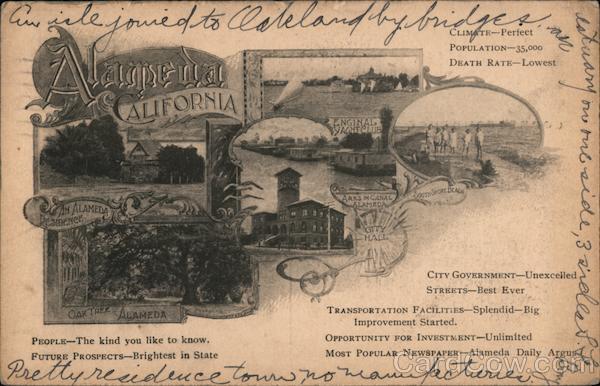 An isle joined to Oakland by bridges, an
estuary on one side, 3 sides S. F. Bay
Alameda
CALIFORNIA
CLIMATE—Perfect
POPULATION—35,000
DEATH RATE—Lowest
ENCINAL YACHT CLUB
AN ALAMEDA RESIDENCE
ARKS IN CANAL ALAMEDA
SOUTH SHORE BEACH
CITY HALL
OAK TREE ALAMEDA
CITY GOVERNMENT—Unexcelled
STREETS—Best Ever
TRANSPORTATION FACILITIES—Splendid—Big
Improvement Started.
OPPORTUNITY FOR INVESTMENT—Unlimited
MOST POPULAR NEWSPAPER—Alameda Daily Argus
PEOPLE—The kind you like to know.
FUTURE PROSPECTS—Brightest in State
Pretty residence town, no manufactories
CardCow.com